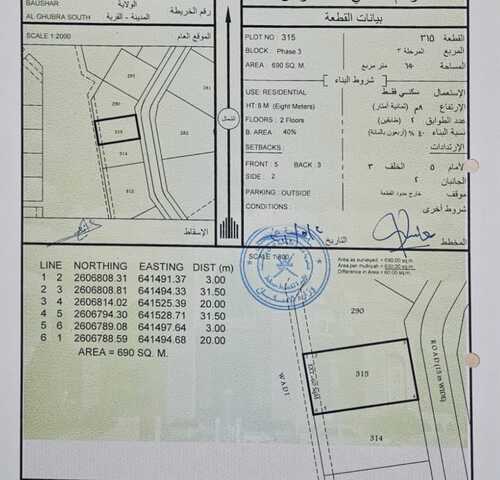 BAUSHAR
الولاية
AL GHUBRA SOUTH
المدينة - القرية
رقم الخريطة
SCALE 1:2000
الموقع العام
290
315
314
312
الإسقاط
الشمال
بيانات القطعة
PLOT NO : 315
القطعة ٣١٥
BLOCK : Phase 3
المربع المرحلة ٣
AREA : 690 SQ. M.
المساحة ٦٩٠ متر مربع
شروط البناء
USE: RESIDENTIAL
الإستعمال سكني فقط
HT: 8 M (Eight Meters)
الإرتفاع ٨م (ثمانية أمتار)
FLOORS : 2 Floors
عدد الطوابق ٢ (طابقين)
B. AREA 40%
نسبة البناء ٤٠٪ (أربعون بالمائة)
SETBACKS :
الإرتدادات
FRONT : 5 BACK : 3
الأمام ٥ الخلف ٣
SIDE : 2
الجانبان ٢
PARKING : OUTSIDE
موقف خارج حدود القطعة
CONDITIONS :
شروط أخرى
التاريخ
المخطط
LINE NORTHING EASTING DIST (m)
1 2 2606808.31 641491.37 3.00
2 3 2606808.81 641494.33 31.50
3 4 2606814.02 641525.39 20.00
4 5 2606794.30 641528.71 31.50
5 6 2606789.08 641497.64 3.00
6 1 2606788.59 641494.68 20.00
AREA = 690 SQ. M.
SCALE 1:600
Area as surveyed = 690.00 sq.m
Area per mulkiyah = 630.00 sq.m
Difference in Area = 60.00 sq.m
290
315
314
WADI
ROAD (15 m WIDE)